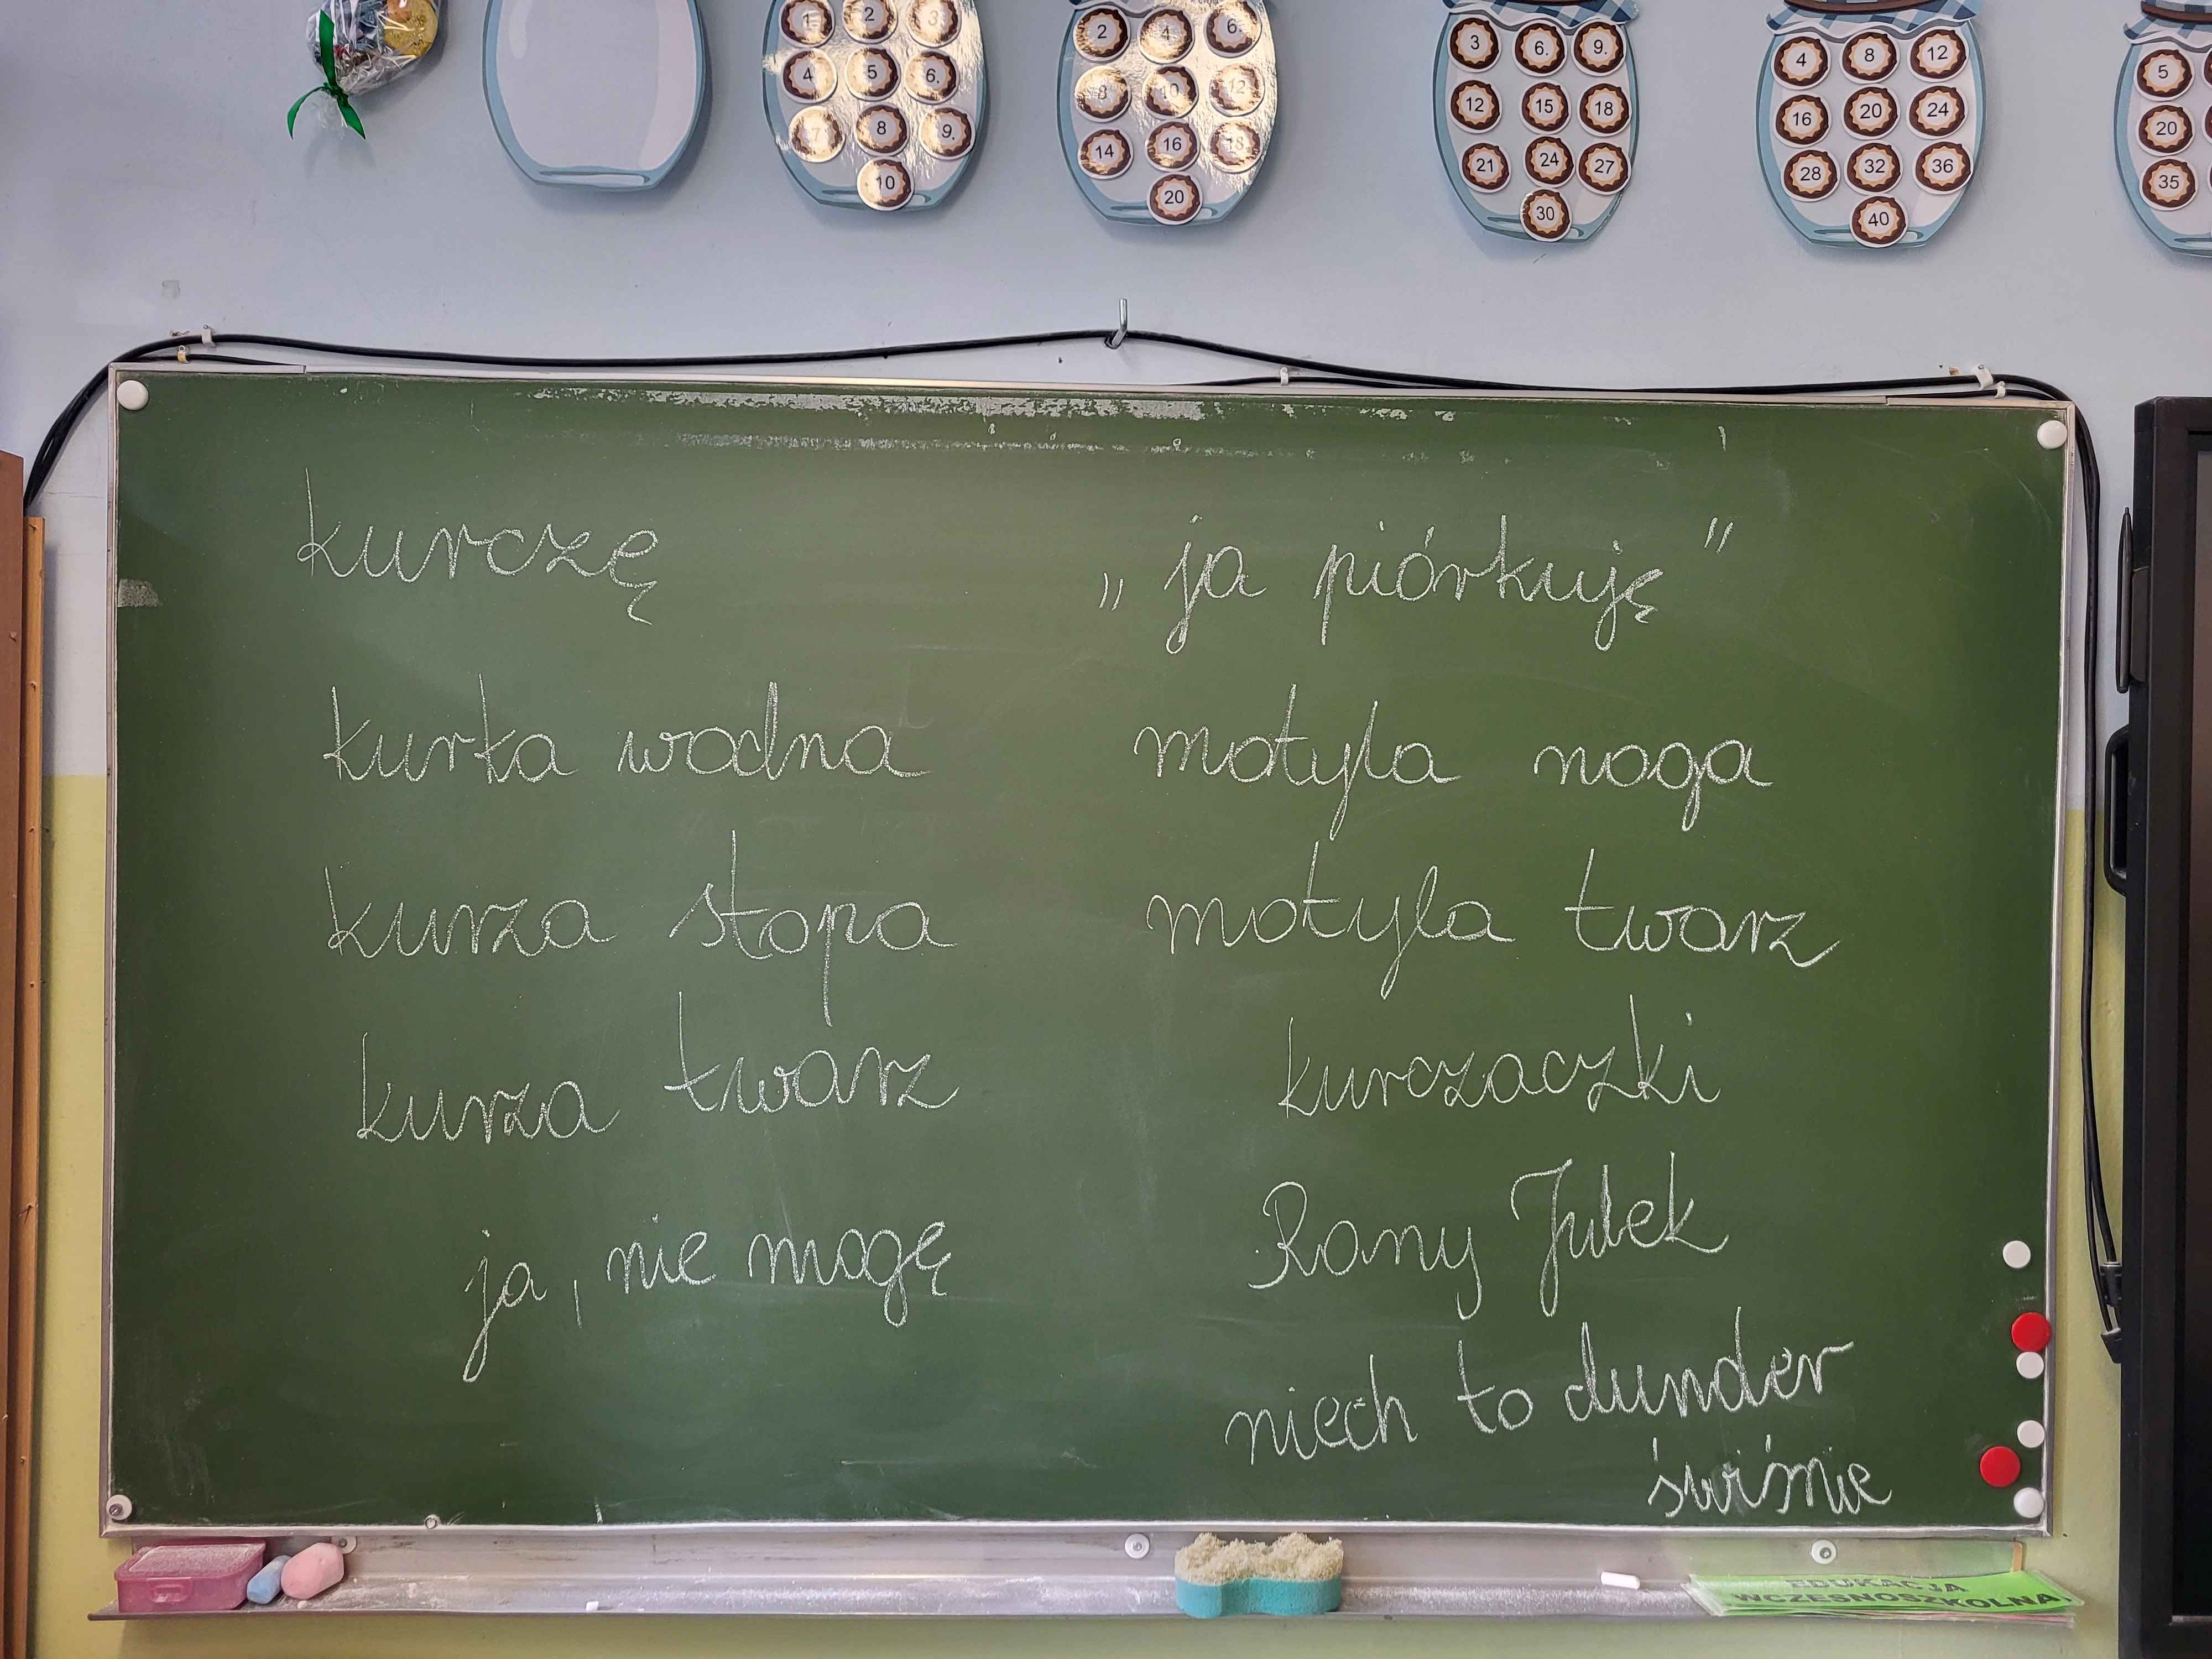 1 2 3
4 5 6.
7 8 9.
10
2 4 6.
8 10 12
14 16 18
20
3 6. 9.
12 15 18
21 24 27
30
4 8 12
16 20 24
28 32 36
40
5
20
35
kurczę
kurka wodna
kurza stopa
kurza twarz
ja, nie mogę
„ja piórkuję"
motyla noga
motyla twarz
kurczaczki
Rany Julek
niech to dunder
świśnie
EDUKACJA
WCZESNOSZKOLNA